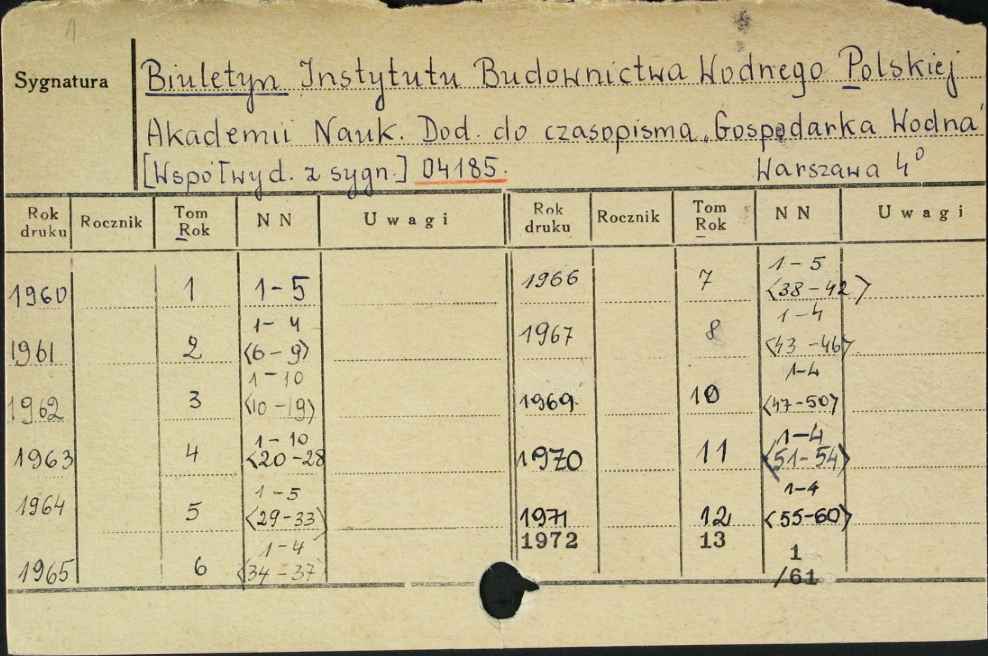 1
Sygnatura
Biuletyn Instytutu Budownictwa Wodnego Polskiej
Akademii Nauk. Dod. do czasopisma „Gospodarka Wodna"
[Współwyd. z sygn.] 04185. Warszawa 4°
Rok druku Rocznik Tom Rok NN Uwagi Rok druku Rocznik Tom Rok NN Uwagi
1960 1 1-5
1961 2 1-4 <6-9>
1962 3 1-10 <10-19>
1963 4 1-10 <20-28
1964 5 1-5 <29-33>
1965 6 1-4 <34-37>
1966 7 1-5 <38-42>
1967 8 1-4 <43-46>
1969 10 1-4 <47-50>
1970 11 1-4 <51-54>
1971 12 1-4 <55-60>
1972 13 1 /61